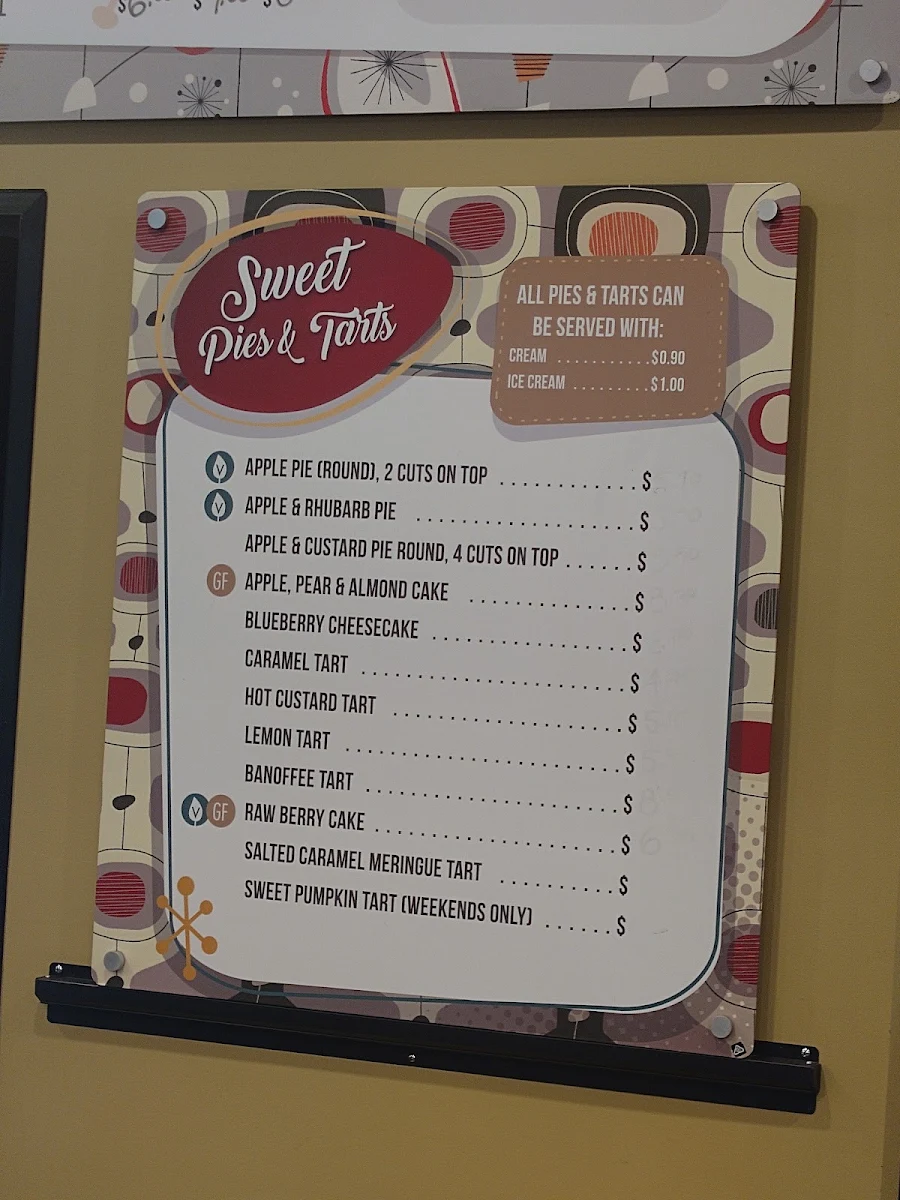 Sweet
Pies & Tarts
ALL PIES & TARTS CAN
BE SERVED WITH:
CREAM ..........$0.90
ICE CREAM .........$1.00
V APPLE PIE (ROUND), 2 CUTS ON TOP ................$
V APPLE & RHUBARB PIE .........................$
APPLE & CUSTARD PIE ROUND, 4 CUTS ON TOP ......$
GF APPLE, PEAR & ALMOND CAKE ..................$
BLUEBERRY CHEESECAKE ......................$
CARAMEL TART .............................$
HOT CUSTARD TART .........................$
LEMON TART ..............................$
BANOFFEE TART ............................$
V GF RAW BERRY CAKE ...........................$
SALTED CARAMEL MERINGUE TART .............$
SWEET PUMPKIN TART (WEEKENDS ONLY) .......$